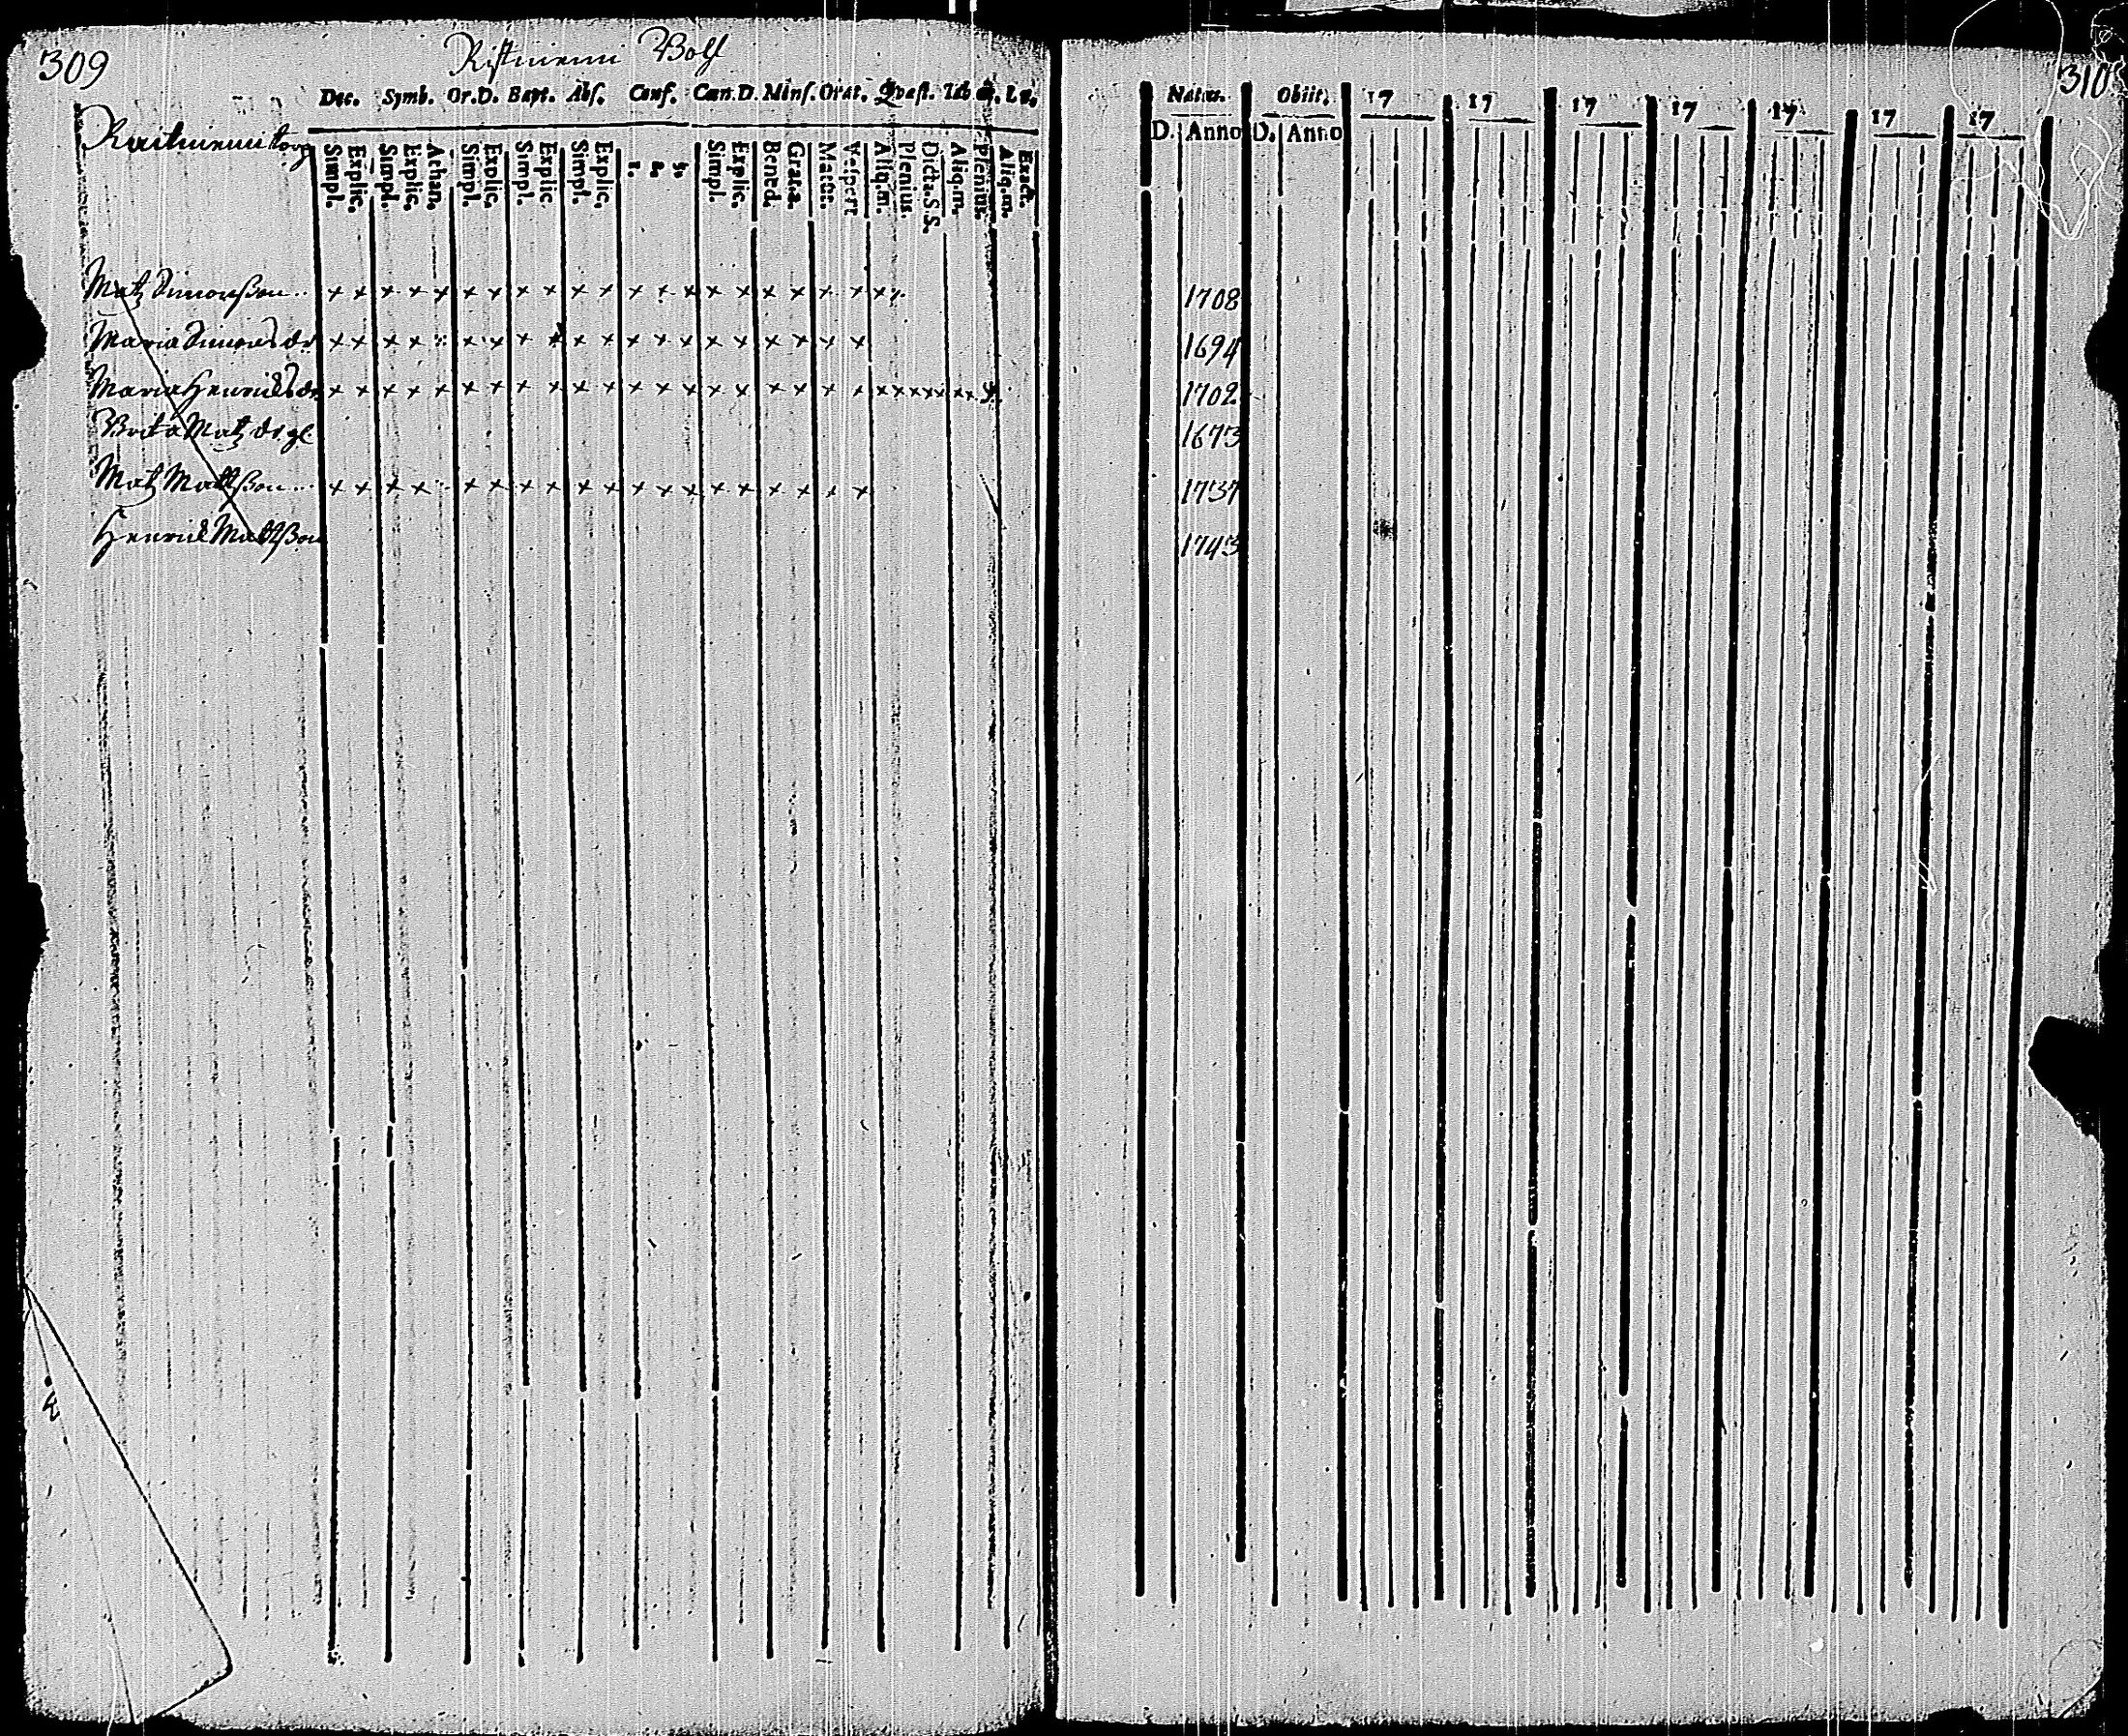 309
Ristiniemi Boll
Dec. Symb. Or.D. Bapt. Abs. Conf. Cœn.D. Minſ. Orat. Qvæſt. Tab
Rautniemi torp
Simpl. Explic. Simpl. Explic. Athan. Simpl. Explic. Simpl. Explic Simpl. Explic. 1. 2. 3. Simpl. Explic. Bened. Grat.a. Matut. Veſpert Aliq.m. Plenius. Dicta.S.S. Aliq.m. Plenius. Aliq.m. Exact.
Matz Simonsson
Maria Simons dr
Maria Henriks dr
Brita Matz dr gl.
Matz Mattsson
Henrik Mattsson
310
Natus. Obiit. 17 17 17 17 17 17 17
D. Anno D. Anno
1708
1694
1702
1673
1737
1743